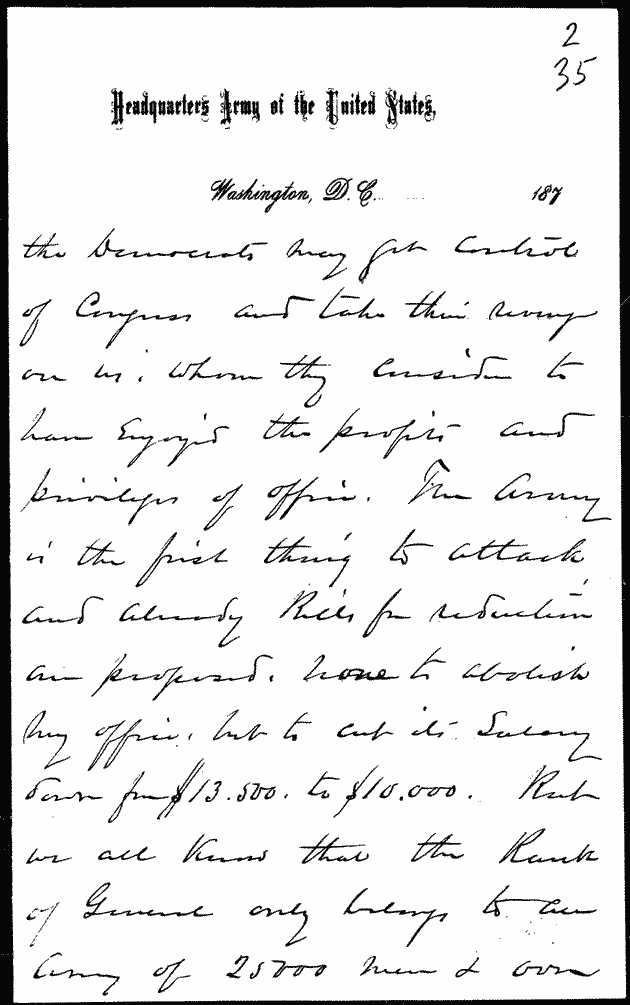 2
35
Headquarters Army of the United States,
Washington, D.C. 187
the Democrats may get control
of Congress and take their revenge
on us, whom they consider to
have Enjoyed the profits and
privileges of office. The Army
is the first thing to attack
and already Bills for reduction
are proposed, none to abolish
my office, but to cut its Salary
down from $13.500. to $10.000. But
we all Know that the Rank
of General only belongs to an
Army of 25000 men & over